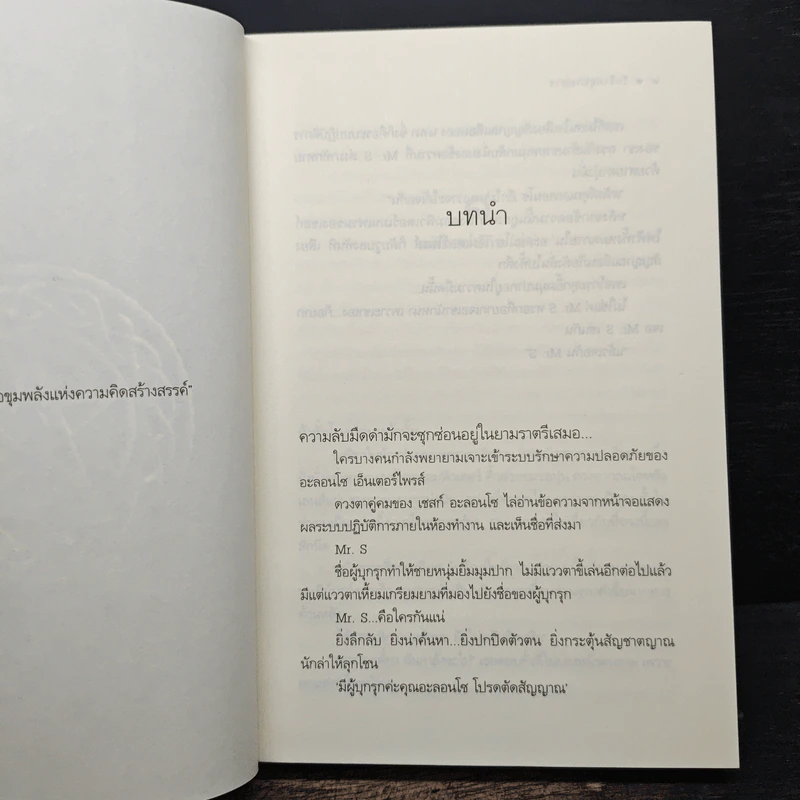 ขุมพลังแห่งความคิดสร้างสรรค์"
บทนำ
ความลับมืดดำมักจะซุกซ่อนอยู่ในยามราตรีเสมอ...
ใครบางคนกำลังพยายามเจาะเข้าระบบรักษาความปลอดภัยของ
อะลอนโซ เอ็นเตอร์ไพรส์
ดวงตาคู่คมของ เซสก์ อะลอนโซ ไล่อ่านข้อความจากหน้าจอแสดง
ผลระบบปฏิบัติการภายในห้องทำงาน และเห็นชื่อที่ส่งมา
Mr. S
ชื่อผู้บุกรุกทำให้ชายหนุ่มยิ้มมุมปาก ไม่มีแววตาขี้เล่นอีกต่อไปแล้ว
มีแต่แววตาเหี้ยมเกรียมยามที่มองไปยังชื่อของผู้บุกรุก
Mr. S...คือใครกันแน่
ยิ่งลึกลับ ยิ่งน่าค้นหา...ยิ่งปกปิดตัวตน ยิ่งกระตุ้นสัญชาตญาณ
นักล่าให้ลุกโชน
'มีผู้บุกรุกค่ะคุณอะลอนโซ โปรดตัดสัญญาณ'